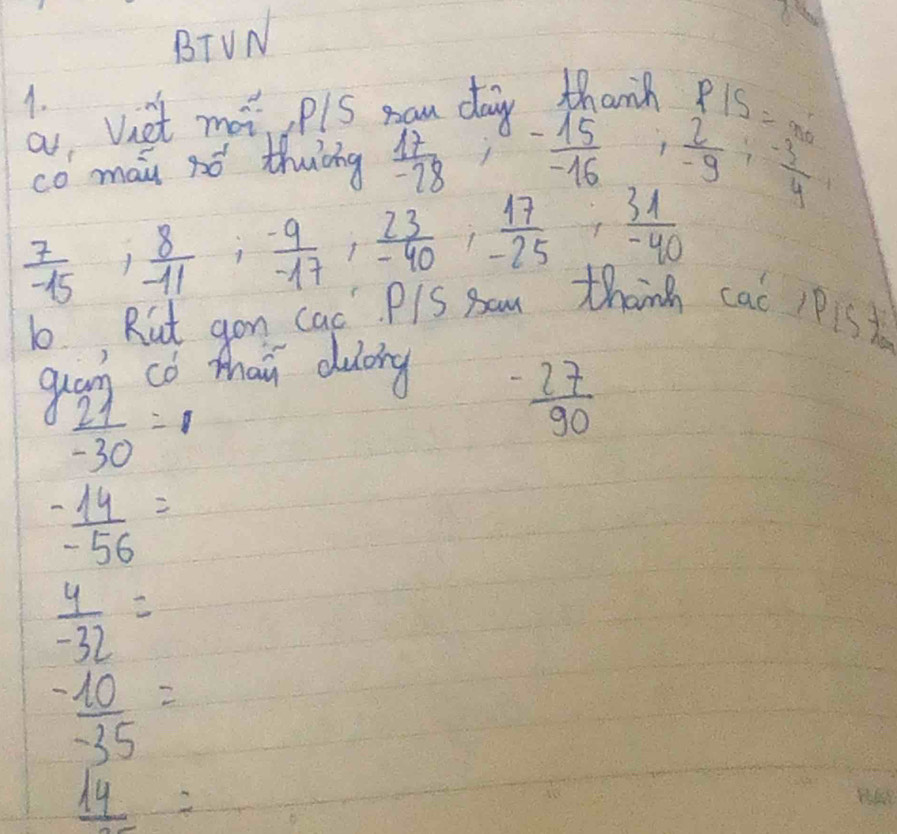 BTVN
1.
a, Viết mỗi P/S sau đây thành P/S = nó
có mẫu số thương 17/-28 ; -15/-16 ; 2/-9 ; -3/4 ,
7/-15 ; 8/-11 ; -9/-17 ; 23/-40 ; 17/-25 ; 31/-40
b, Rút gọn các P/S sau thành các P/S
giản có mẫu dương
21/-30 = -27/90
-14/-56 =
4/-32 =
-10/-35 =
14/ =